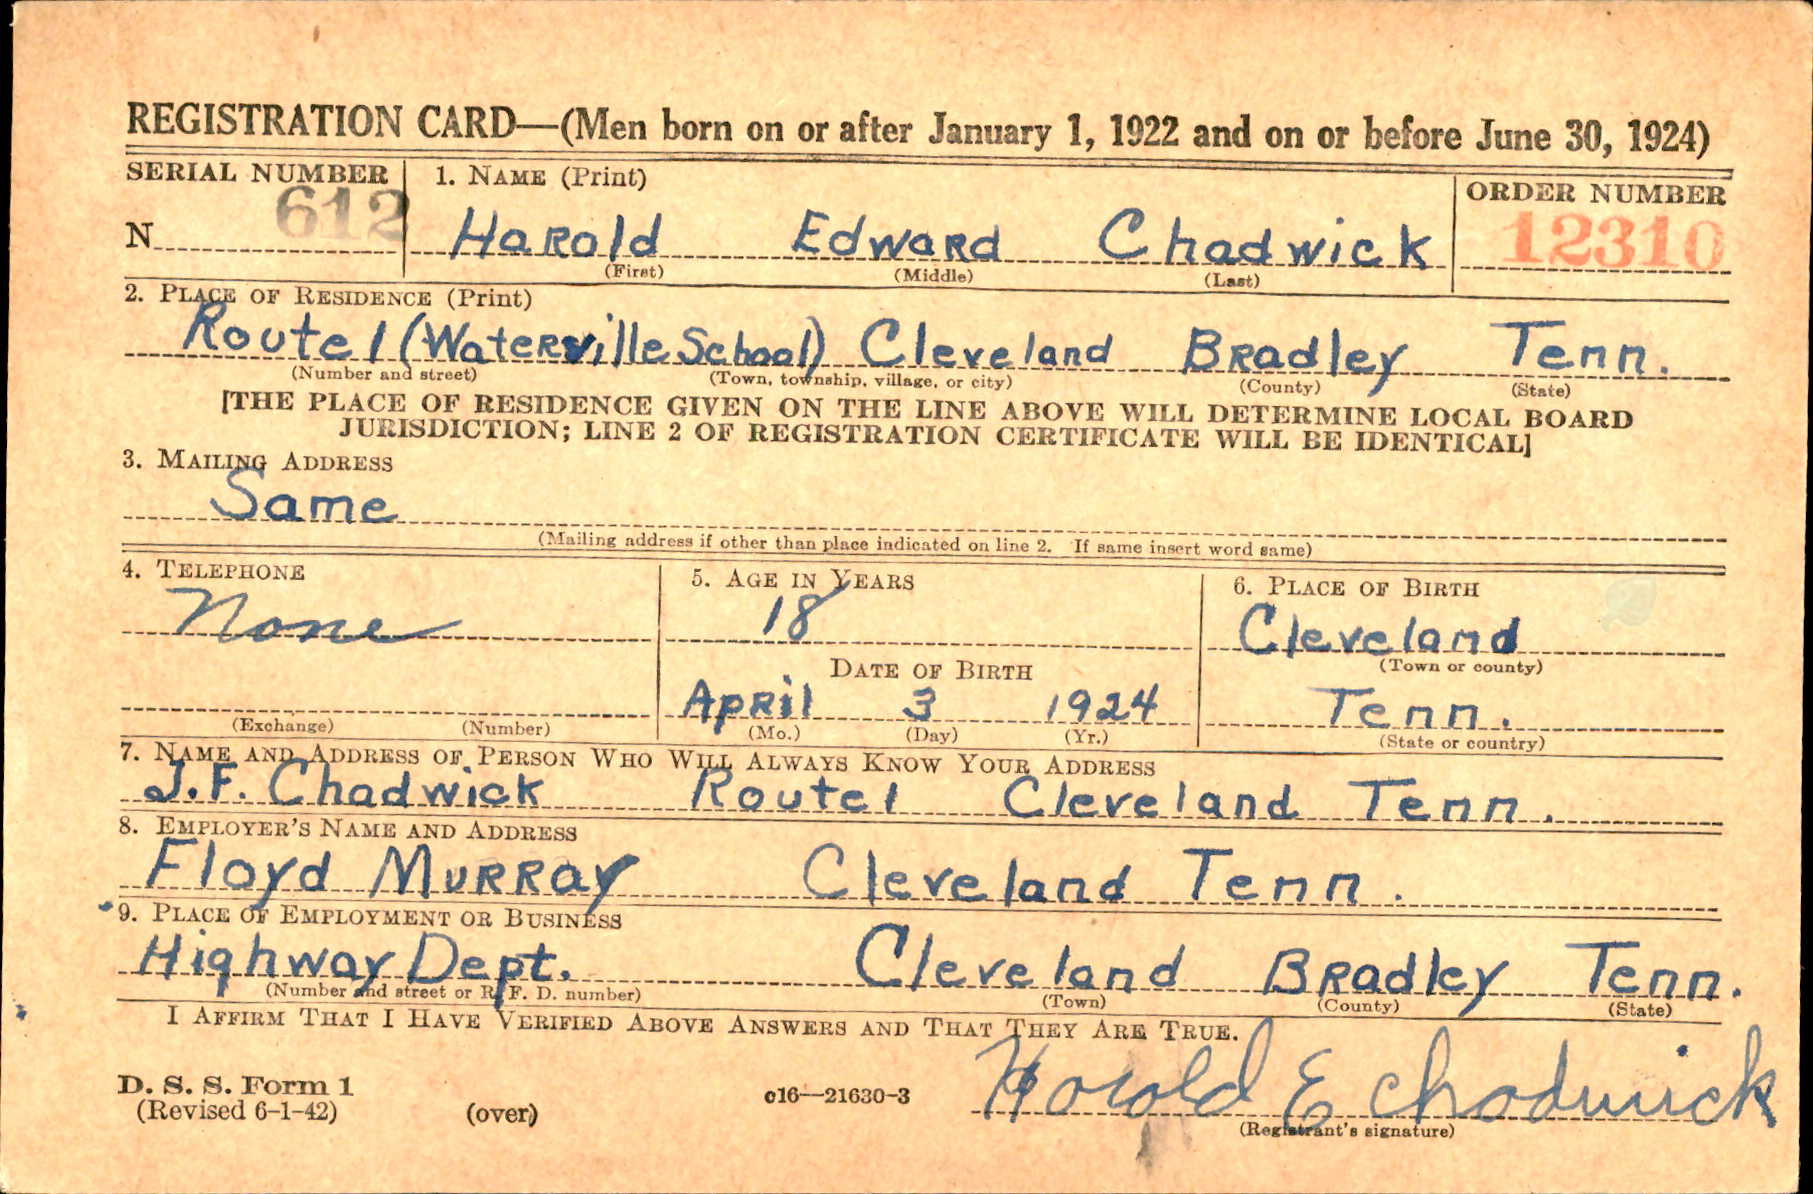 REGISTRATION CARD—(Men born on or after January 1, 1922 and on or before June 30, 1924)
SERIAL NUMBER 1. NAME (Print) ORDER NUMBER
N 612 Harold Edward Chadwick 12310
(First) (Middle) (Last)
2. PLACE OF RESIDENCE (Print)
Route 1 (Waterville School) Cleveland Bradley Tenn.
(Number and street) (Town, township, village, or city) (County) (State)
[THE PLACE OF RESIDENCE GIVEN ON THE LINE ABOVE WILL DETERMINE LOCAL BOARD
JURISDICTION; LINE 2 OF REGISTRATION CERTIFICATE WILL BE IDENTICAL]
3. MAILING ADDRESS
Same
(Mailing address if other than place indicated on line 2. If same insert word same)
4. TELEPHONE 5. AGE IN YEARS 6. PLACE OF BIRTH
None 18 Cleveland
(Town or county)
DATE OF BIRTH
April 3 1924 Tenn.
(Exchange) (Number) (Mo.) (Day) (Yr.) (State or country)
7. NAME AND ADDRESS OF PERSON WHO WILL ALWAYS KNOW YOUR ADDRESS
J.F. Chadwick Route 1 Cleveland Tenn.
8. EMPLOYER'S NAME AND ADDRESS
Floyd Murray Cleveland Tenn.
9. PLACE OF EMPLOYMENT OR BUSINESS
Highway Dept. Cleveland Bradley Tenn.
(Number and street or R. F. D. number) (Town) (County) (State)
I AFFIRM THAT I HAVE VERIFIED ABOVE ANSWERS AND THAT THEY ARE TRUE.
D. S. S. Form 1
(Revised 6-1-42) (over) c16—21630-3 Harold E Chadwick
(Registrant's signature)